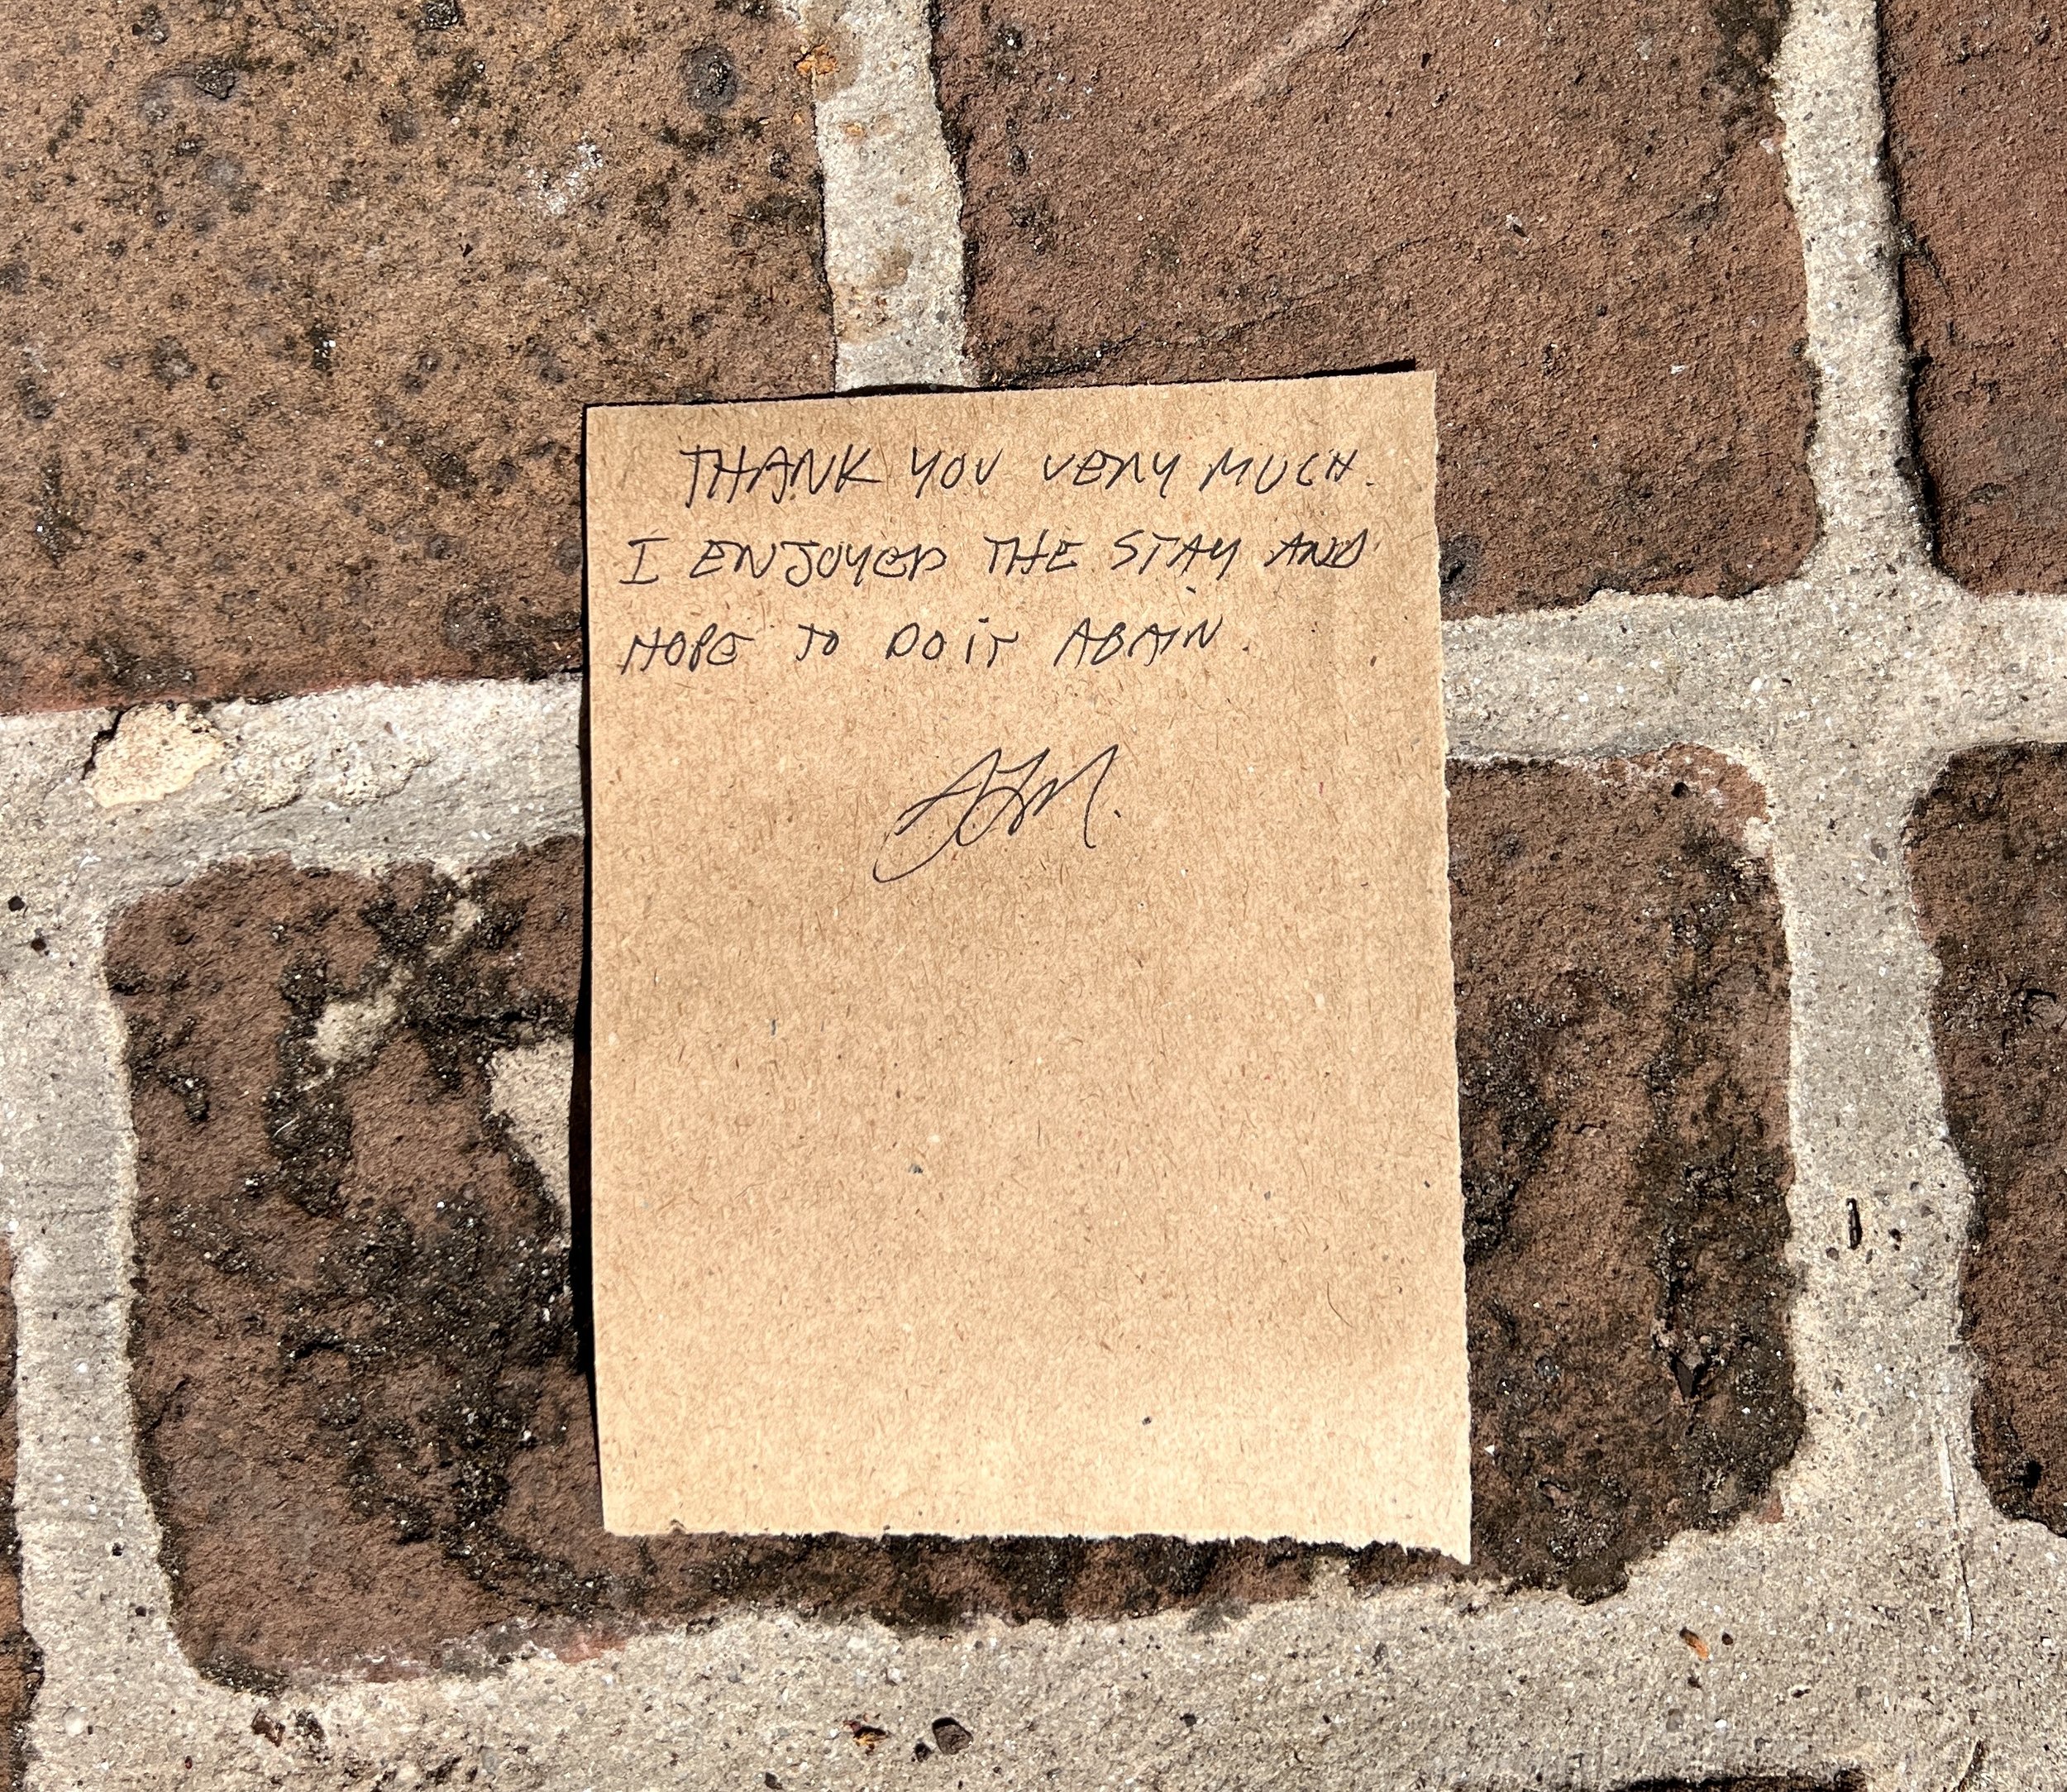 THANK YOU VERY MUCH.
I ENJOYED THE STAY AND
HOPE TO DO IT AGAIN.